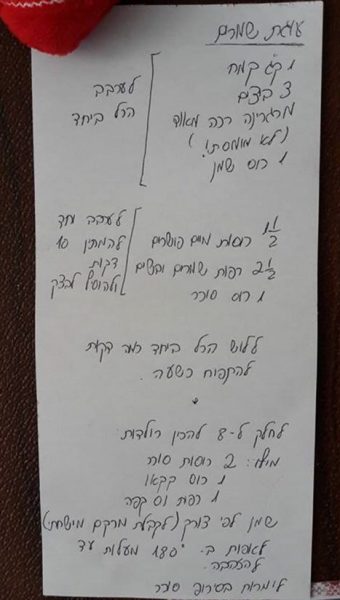 עוגת שמרים
1 ק"ג קמח
2 בצים
מרגרינה רכה מאוד
(לא מומסת!)
1 כוס שמן
לערבב
הכל ביחד
1 1/2 כוסות מים פושרים
2 1/2 כפות שמרים יבשים
1 כוס סוכר
לערבב יחד
להמתין 10
דקות
ולהוסיף לבצק
ללוש הכל ביחד כמה דקות
להתפיח כשעה.
*
לחלק ל-8 להכין רולדות
מילוי: 2 כוסות סוכר
1 כוס קקאו
1 כפית נס קפה
שמן לפי צורך (לקבלת מרקם מישחתי)
לאפות ב- 180° מעלות עד
להזהבה.
למרוח בסירופ סוכר